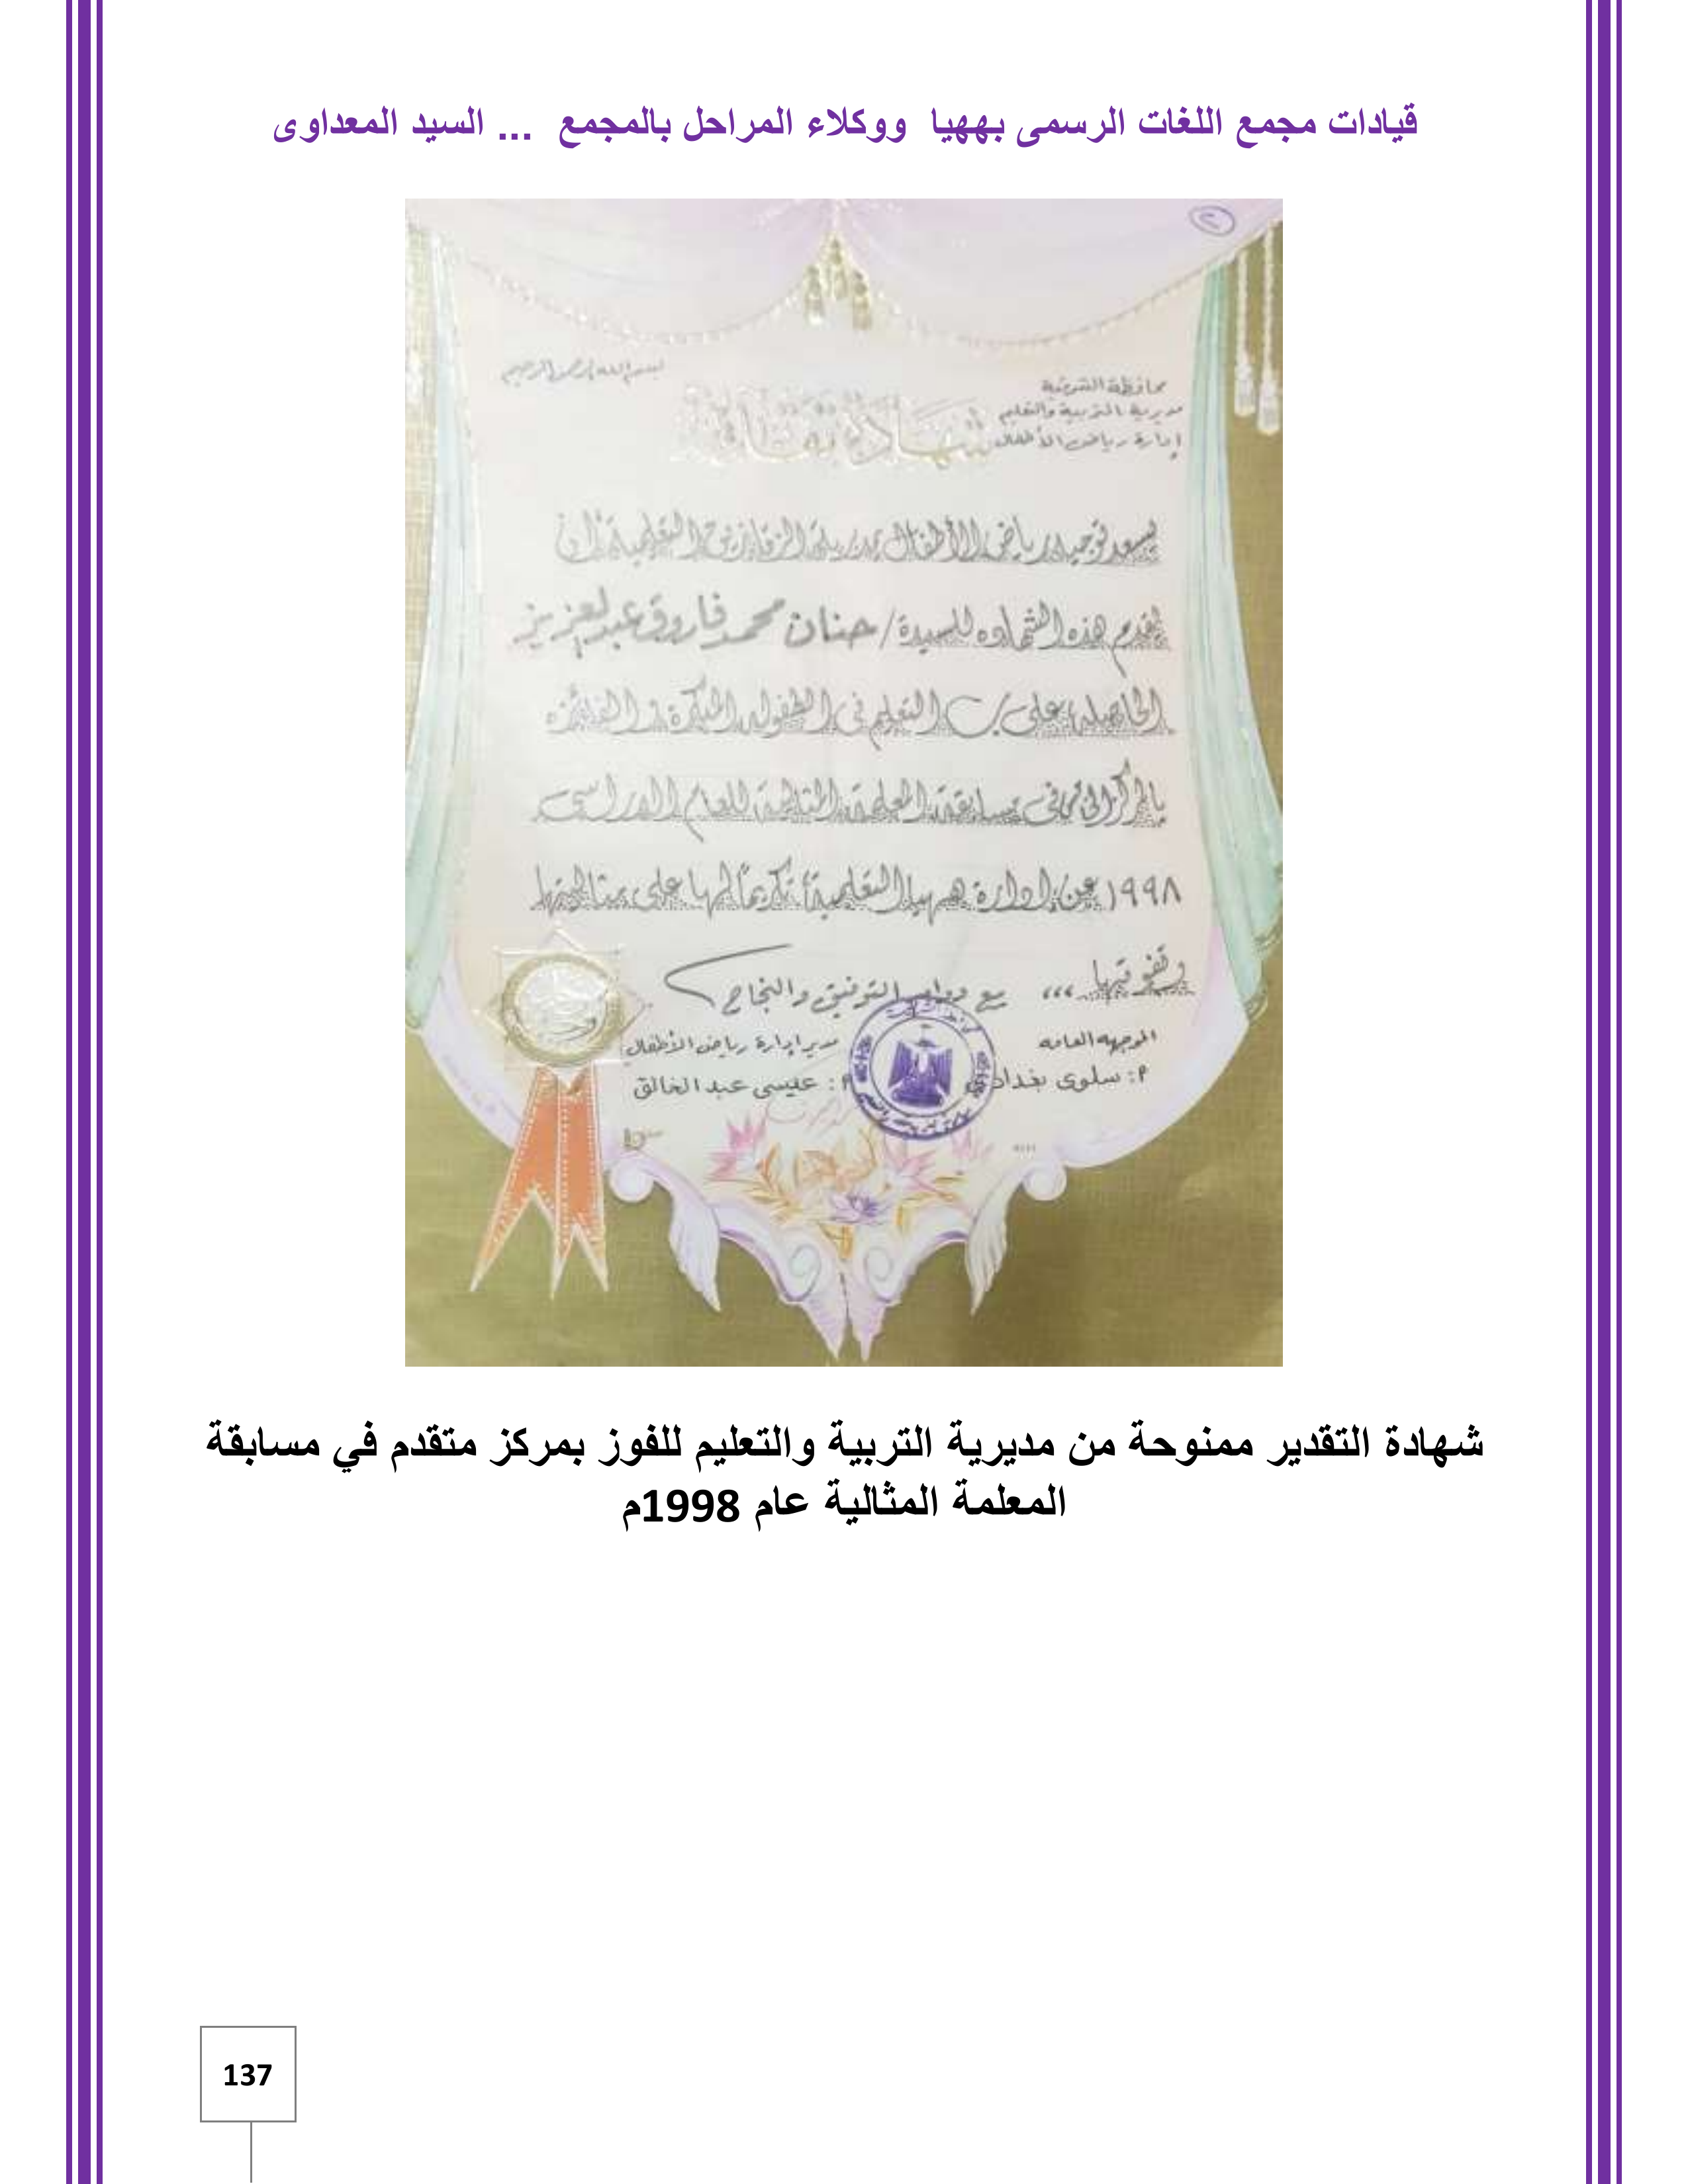 قيادات مجمع اللغات الرسمى بههيا ووكلاء المراحل بالمجمع ... السيد المعداوى
٢
بسم الله الرحمن الرحيم
محافظة الشرقية
مديرية التربية والتعليم
إدارة رياض الأطفال
شهادة تقدير
يسعد توجيه رياض الأطفال بمديرية الزقازيق التعليمية أن
يقدم هذه الشهاده للسيدة / حنان محمد فاروق عبد العزيز
الحاصلة على ب التعليم فى الطفوله المبكرة والفائزه
بالمركز فى مسابقة المعلمة المثالية للعام الدراسى
١٩٩٨ عن إدارة ههيا التعليمية تكريماً لها على مثاليتها
وتفوقها ،،، مع دوام التوفيق والنجاح
الموجهه العامه
مدير إدارة رياض الأطفال
م : سلوى بغدادى
م : عيسى عبد الخالق
شهادة التقدير ممنوحة من مديرية التربية والتعليم للفوز بمركز متقدم في مسابقة
المعلمة المثالية عام 1998م
137